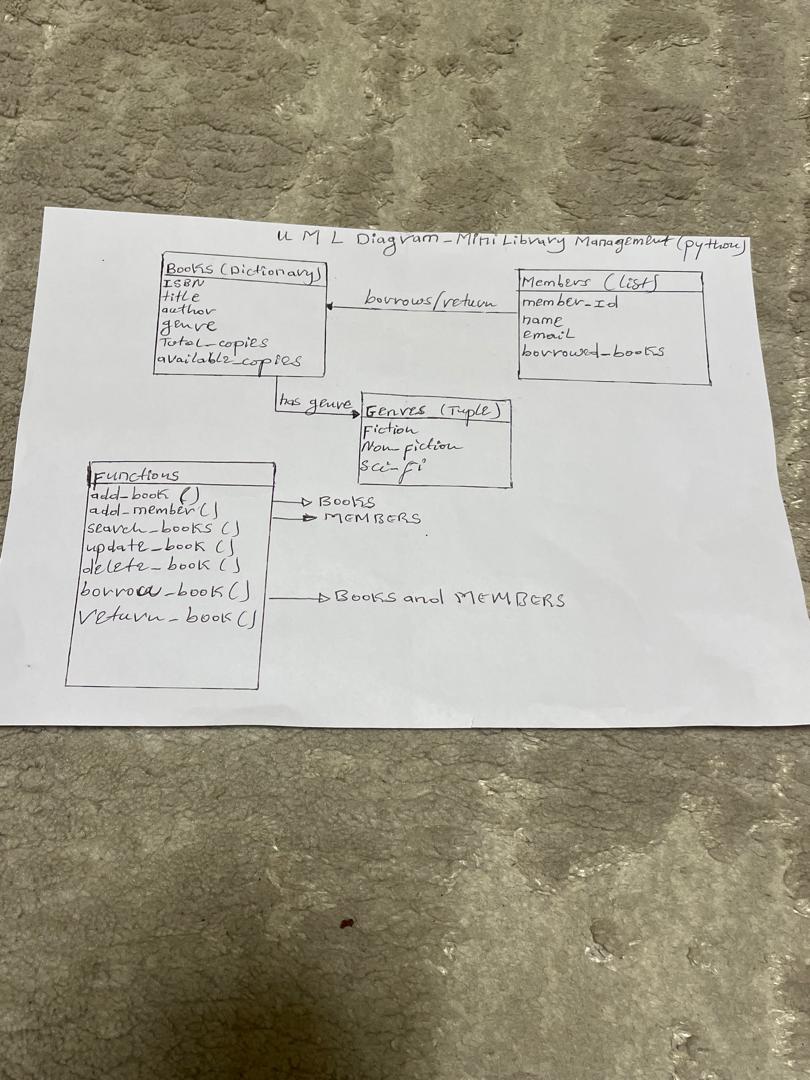 U M L Diagram - Mini Library Management (python)
Books (Dictionary)
ISBN
title
author
genre
Total_copies
available_copies
borrows/return
Members (list)
member_Id
name
email
borrowed_books
has genre
Genres (Tuple)
Fiction
Non_fiction
Sci-fi
Functions
add_book ()
add_member()
search_books ()
update_book ()
delete_book ()
borrow_book()
return_book()
BOOKS
MEMBERS
BOOKS and MEMBERS